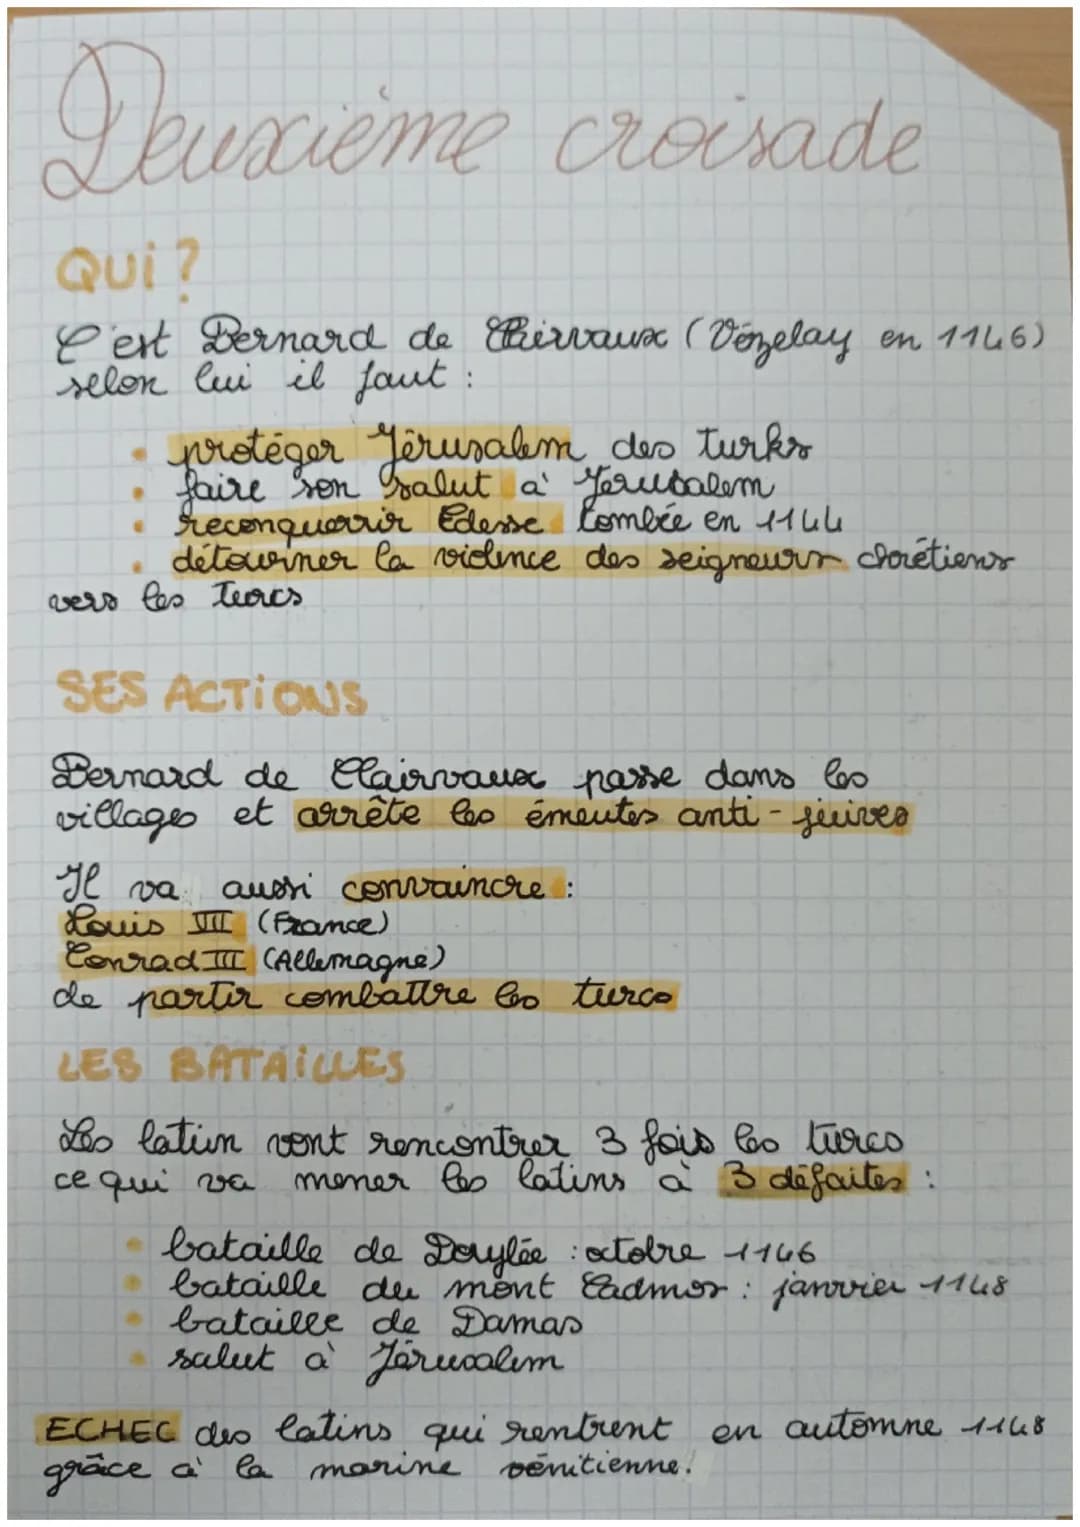 Deuxième croisade
QUI ?
C'est Bernard de Clairvaux (Vézelay en 1146)
selon lui il faut :
• protéger Jérusalem des turks
• faire son salut à Jerusalem
• reconquerrir Edesse tombée en 1144
• détourner la violence des seigneurs chrétiens
vers les turcs
SES ACTIONS
Bernard de Clairvaux passe dans les
villages et arrête les émeutes anti-juives
Il va aussi convaincre :
Louis VII (France)
Conrad III (Allemagne)
de partir combattre les turcs
LES BATAILLES
Les latin vont rencontrer 3 fois les turcs
ce qui va mener les latins à 3 défaites :
• bataille de Dorylée : octobre 1146
• bataille du mont Cadmos : janvier 1148
• bataille de Damas
• salut à Jérusalem
ECHEC des latins qui rentrent en automne 1148
grâce à la marine vénitienne.